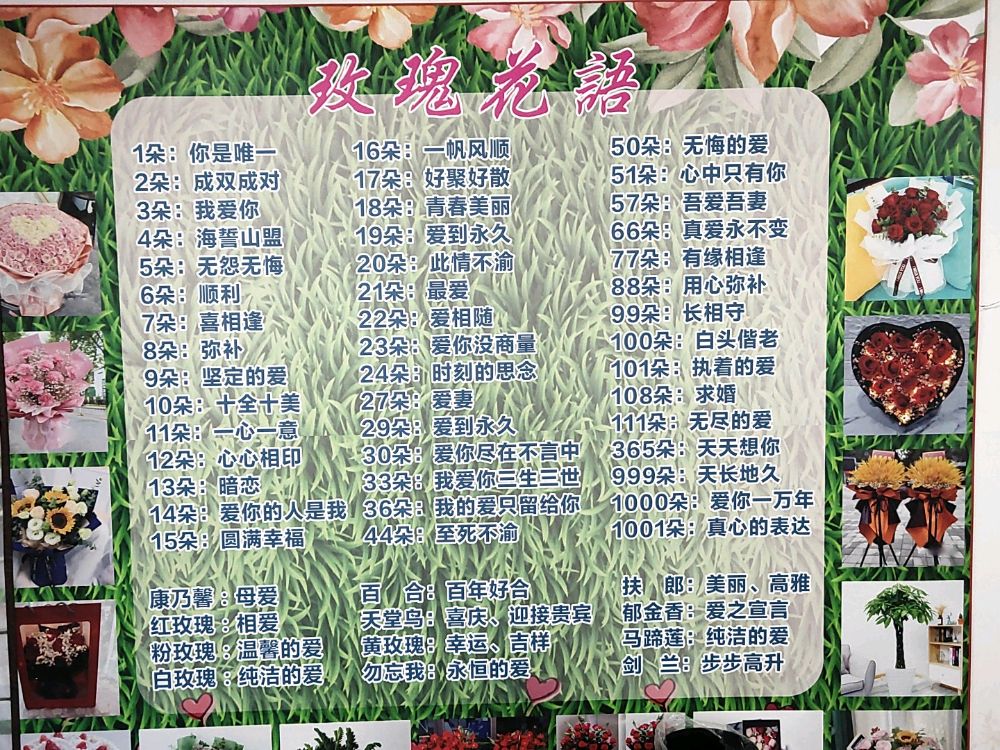 玫瑰花語
1朵：你是唯一
2朵：成双成对
3朵：我爱你
4朵：海誓山盟
5朵：无怨无悔
6朵：顺利
7朵：喜相逢
8朵：弥补
9朵：坚定的爱
10朵：十全十美
11朵：一心一意
12朵：心心相印
13朵：暗恋
14朵：爱你的人是我
15朵：圆满幸福
16朵：一帆风顺
17朵：好聚好散
18朵：青春美丽
19朵：爱到永久
20朵：此情不渝
21朵：最爱
22朵：爱相随
23朵：爱你没商量
24朵：时刻的思念
27朵：爱妻
29朵：爱到永久
30朵：爱你尽在不言中
33朵：我爱你三生三世
36朵：我的爱只留给你
44朵：至死不渝
50朵：无悔的爱
51朵：心中只有你
57朵：吾爱吾妻
66朵：真爱永不变
77朵：有缘相逢
88朵：用心弥补
99朵：长相守
100朵：白头偕老
101朵：执着的爱
108朵：求婚
111朵：无尽的爱
365朵：天天想你
999朵：天长地久
1000朵：爱你一万年
1001朵：真心的表达
康乃馨：母爱
红玫瑰：相爱
粉玫瑰：温馨的爱
白玫瑰：纯洁的爱
百 合：百年好合
天堂鸟：喜庆、迎接贵宾
黄玫瑰：幸运、吉祥
勿忘我：永恒的爱
扶 郎：美丽、高雅
郁金香：爱之宣言
马蹄莲：纯洁的爱
剑 兰：步步高升